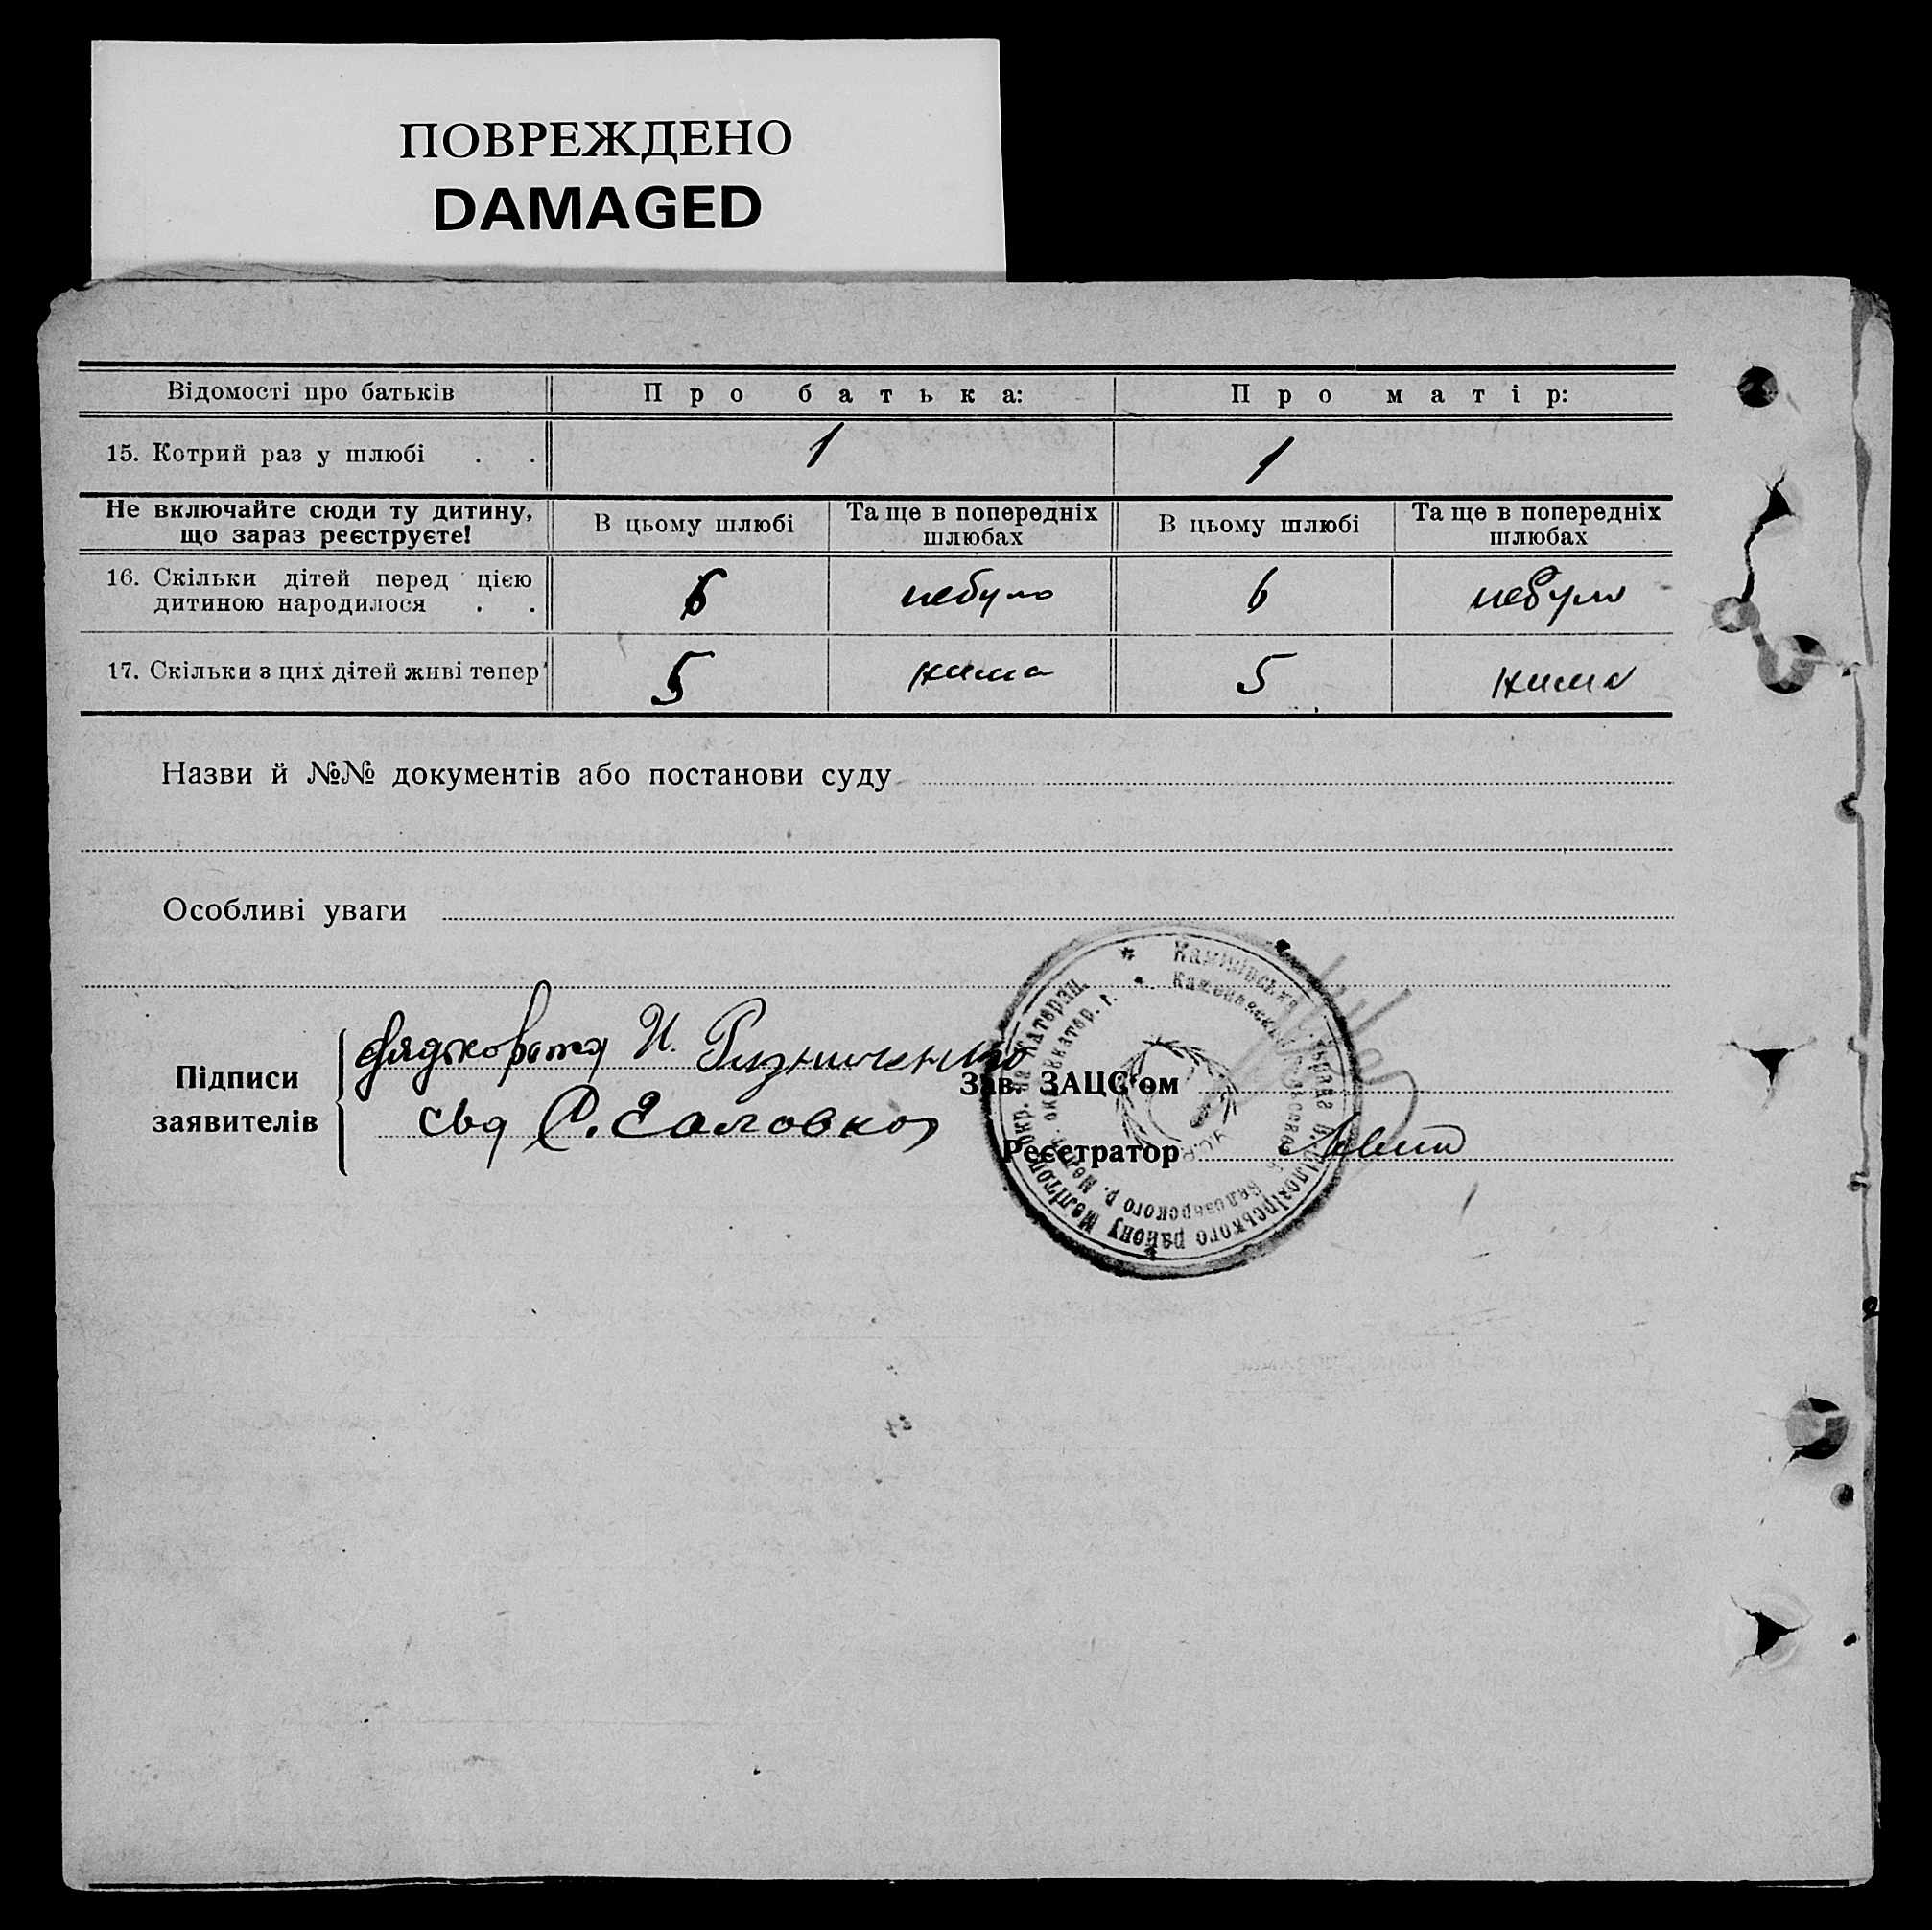 ПОВРЕЖДЕНО
DAMAGED
Відомості про батьків Про батька: Про матір:
15. Котрий раз у шлюбі . . 1 1
Не включайте сюди ту дитину, що зараз реєструєте! В цьому шлюбі Та ще в попередніх шлюбах В цьому шлюбі Та ще в попередніх шлюбах
16. Скільки дітей перед цією дитиною народилося . . 6 небуло 6 небуло
17. Скільки з цих дітей живі тепер 5 нима 5 нима
Назви й №№ документів або постанови суду
Особливі уваги
Підписи заявителів
И. Ризниченко
свд С. Саловкоз
Зав. ЗАЦС'ом
Реєстратор
району Меліто